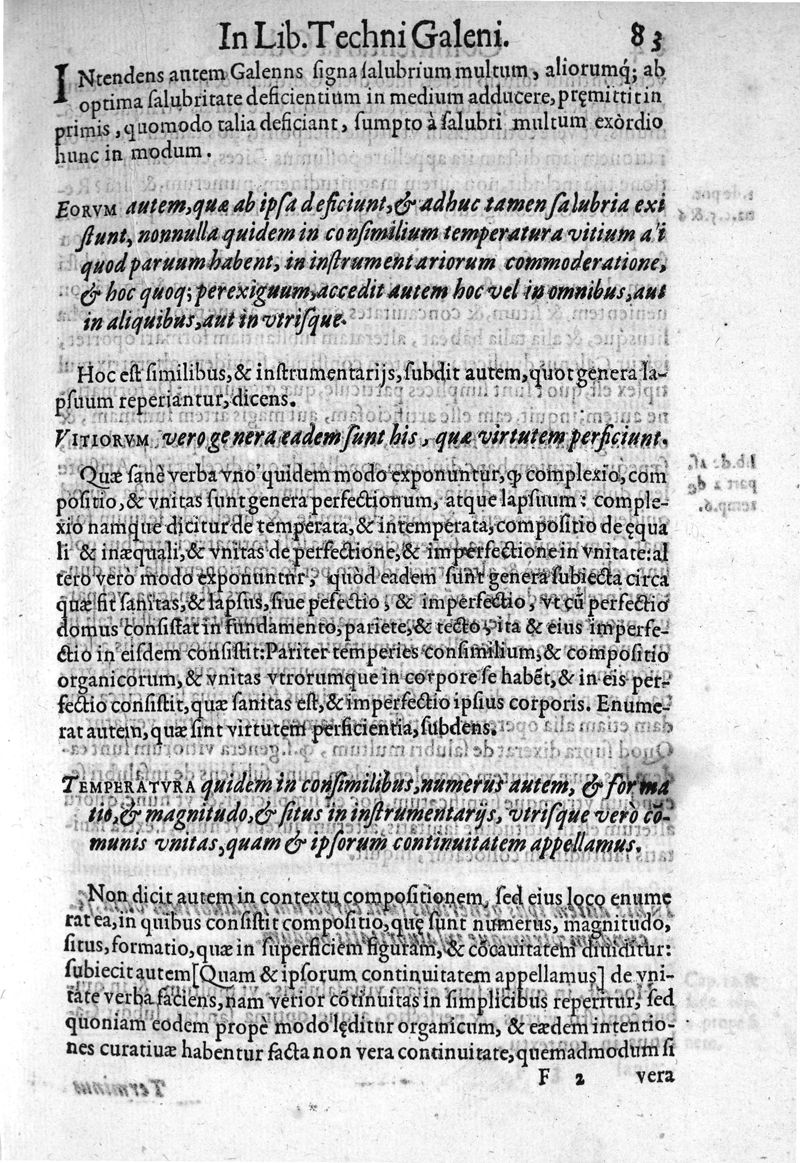 In Lib. Techni Galeni. 83
INtendens autem Galenns signa salubrium multum, aliorumq́; ab
optima salubritate deficientium in medium adducere, pręmittit in
primis, quomodo talia deficiant, sumpto à salubri multum exòrdio
hunc in modum.
EORVM autem, quæ ab ipsa deficiunt, & adhuc tamen salubria exi
stunt, nonnulla quidem in consimilium temperatura vitium ali
quod paruum habent, in instrumentariorum commoderatione,
& hoc quoq; perexiguum, accedit autem hoc vel in omnibus, aut
in aliquibus, aut in vtrisque.
Hoc est similibus, & instrumentarijs, subdit autem, quot genera la-
psuum reperiantur, dicens.
VITIORVM vero genera eadem sunt his, quæ virtutem perficiunt.
Quæ sanè verba vno quidem modo exponuntur, ꝙ complexio, com
positio, & vnitas sunt genera perfectionum, atque lapsuum: comple-
xio namque dicitur de temperata, & intemperata, compositio de ęqua
li & inæquali, & vnitas de perfectione, & imperfectione in vnitate: al
tero verò modo exponuntur, quòd eadem sunt genera subiecta circa
quæ fit sanitas, & lapsus, siue pefectio, & imperfectio, vt cũ perfectio
domus consistat in fundamento, pariete, & tecto, ita & eius imperfe-
ctio in eisdem consistit: Pariter temperies consimilium, & compositio
organicorum, & vnitas vtrorumque in corpore se habẽt, & in eis per-
fectio consistit, quæ sanitas est, & imperfectio ipsius corporis. Enume-
rat autem, quæ sint virtutem perficientia, subdens.
TEMPERATVRA quidem in consimilibus, numerus autem, & forma
tio, & magnitudo, & situs in instrumentarijs, vtrisque verò cõ-
munis vnitas, quam & ipsorum continuitatem appellamus.
Non dicit autem in contextu compositionem, sed eius loco enume
rat ea, in quibus consistit compositio, quę sunt numerus, magnitudo,
situs, formatio, quæ in superficiem figuram, & cõcauitatem diuiditur:
subiecit autem [Quam & ipsorum continuitatem appellamus] de vni-
tate verba faciens, nam verior cõtinuitas in simplicibus reperitur, sed
quoniam eodem propè modo lęditur organicum, & eædem intentio-
nes curatiuæ habentur facta non vera continuitate, quemadmodum si
F 2 vera